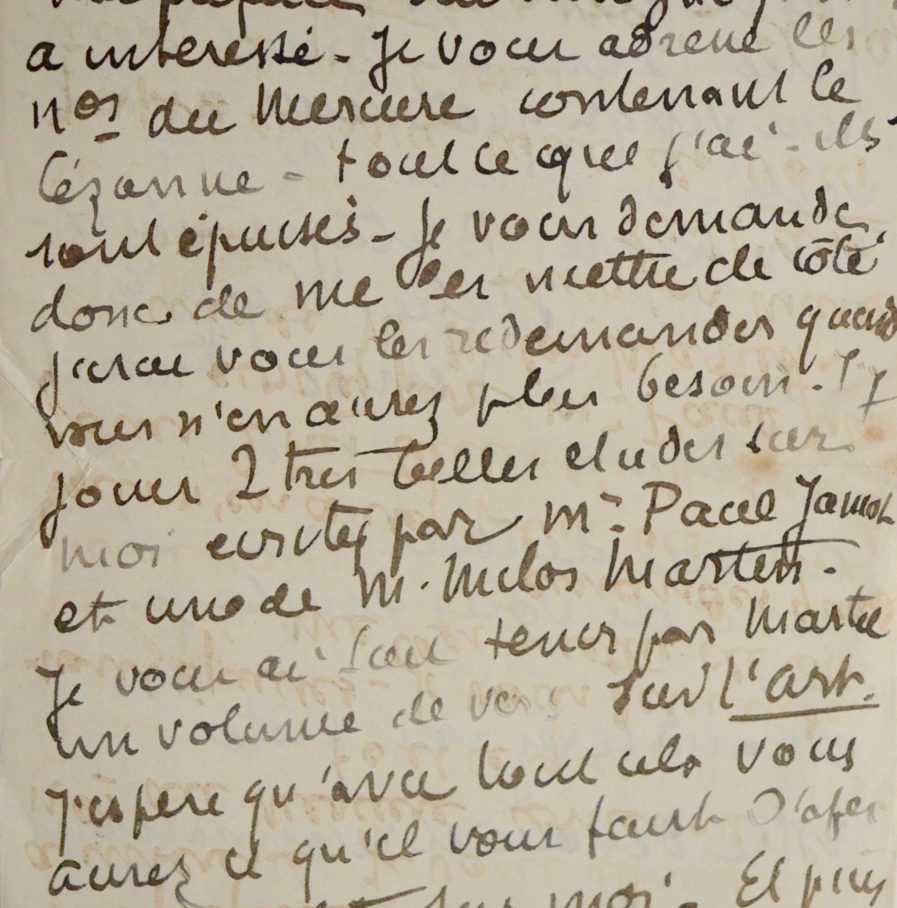 a interessé - Je vous adresse les
nos du Mercure contenant le
Cézanne - tout ce que j'ai - ils
sont épuisés - Je vous demande
donc de me les mettre de côté
j'irai vous les redemander quand
vous n'en aurez plus besoin. Il y
pour 2 tres belles etudes sur
moi ecrites par Mr Paul Jamot
et une de M. Milos Marten -
Je vous ai fait tenir par
un volume de vers sur l'art.
J'espere qu'avec tout cela vous
aurez ce qu'il vous faut
moi. Et puis